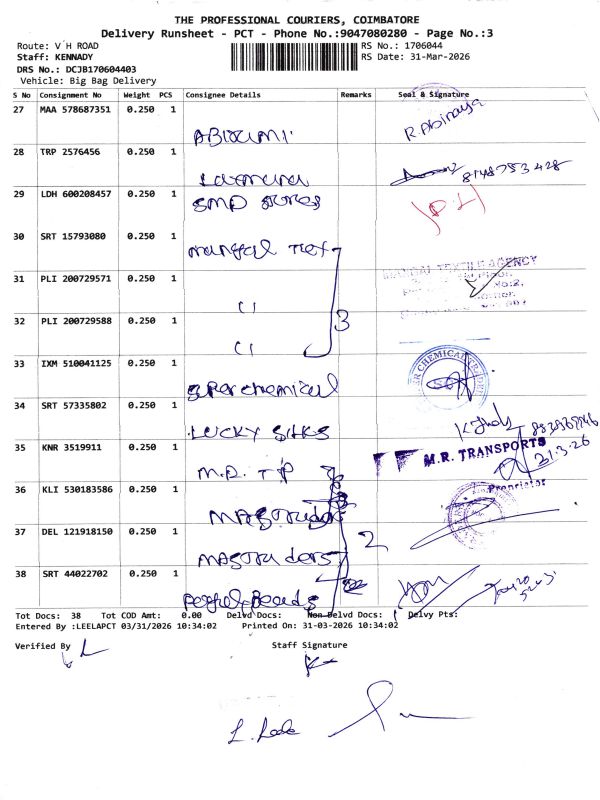 THE PROFESSIONAL COURIERS, COIMBATORE
Delivery Runsheet - PCT - Phone No.:9047080280 - Page No.:3
Route: V'H ROAD
RS No.: 1706044
Staff: KENNADY
RS Date: 31-Mar-2026
DRS No.: DCJB170604403
Vehicle: Big Bag Delivery
S No Consignment No Weight PCS Consignee Details Remarks Seal & Signature
27 MAA 578687351 0.250 1
R. Abinaya
28 TRP 2576456 0.250 1
8148753428
29 LDH 600208457 0.250 1
SMD stores
30 SRT 15793080 0.250 1
mangal Tex
31 PLI 200729571 0.250 1
MANGAL TEXTILE AGENCY
32 PLI 200729588 0.250 1
3
33 IXM 510041125 0.250 1
super chemical
34 SRT 57335802 0.250 1
LUCKY SILKS
35 KNR 3519911 0.250 1
M.R. TRANSPORTS
M.R. T P
Proprietor
36 KLI 530183586 0.250 1
37 DEL 121918150 0.250 1
2
38 SRT 44022702 0.250 1
Tot Docs: 38 Tot COD Amt: 0.00 Delvd Docs: Non Delvd Docs: Delvy Pts:
Entered By :LEELAPCT 03/31/2026 10:34:02 Printed On: 31-03-2026 10:34:02
Verified By
Staff Signature